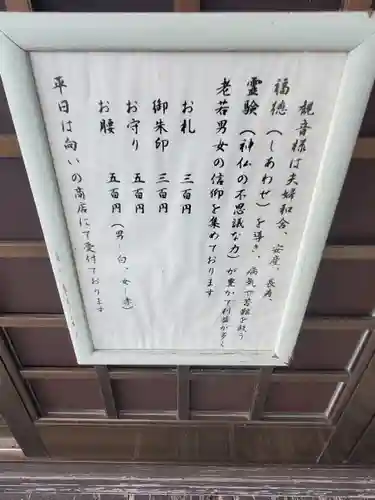 観音様は夫婦和合、安産、長寿、
福徳（しあわせ）を導き、病気や苦難を救う
霊験（神仏の不思議な力）が豊かで利益が多く
老若男女の信仰を集めております
お札 三百円
御朱印 三百円
お守り 五百円
お腰 五百円（男－白、女－赤）
平日は向いの商店にて受付ております